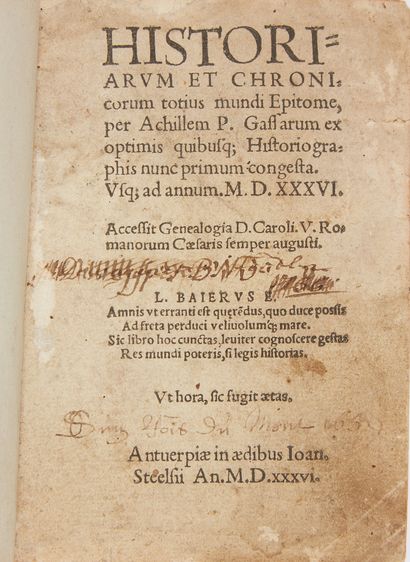 HISTORI=
ARVM ET CHRONI-
corum totius mundi Epitome,
per Achillem P. Gassarum ex
optimis quibusq; Historiogra-
phis nunc primum congesta.
Vsq; ad annum. M. D. XXXVI.
Accessit Genealogia D. Caroli. V. Ro-
manorum Cæsaris semper augusti.
L. BAIERVS E.
Amnis vt erranti est querēdus, quo duce possis
Ad freta perduci veliuolumq; mare.
Sic libro hoc cunctas, leuiter cognoscere gestas
Res mundi poteris, si legis historias.
Vt hora, sic fugit ætas.
du Mont
Antuerpiæ in ædibus Ioan.
Steelsii An. M. D. xxxvi.